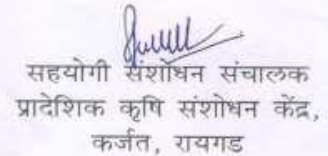 सहयोगी संशोधन संचालक
प्रादेशिक कृषि संशोधन केंद्र,
कर्जत, रायगड